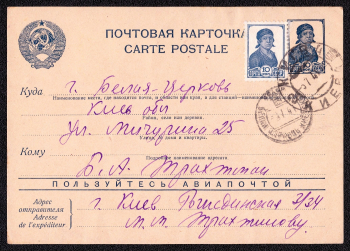 ПОЧТОВАЯ КАРТОЧКА
CARTE POSTALE
10
Куда
г. Белая-Церковь
Название места, где находится почта, и области или края, а для станций—наименование
Киев обл
Район, село или деревня.
Ул. Мичурина 25
Улица, № дома и квартиры.
Кому
Подробное наименование адресата
Б. А. Трахтман
ПОЛЬЗУЙТЕСЬ АВИАПОЧТОЙ
Адрес
отправителя
Adresse de
l'expéditeur
г. Киев 3/24
М. М.